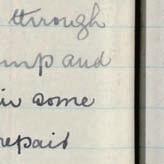 through
ump and
in some
repair